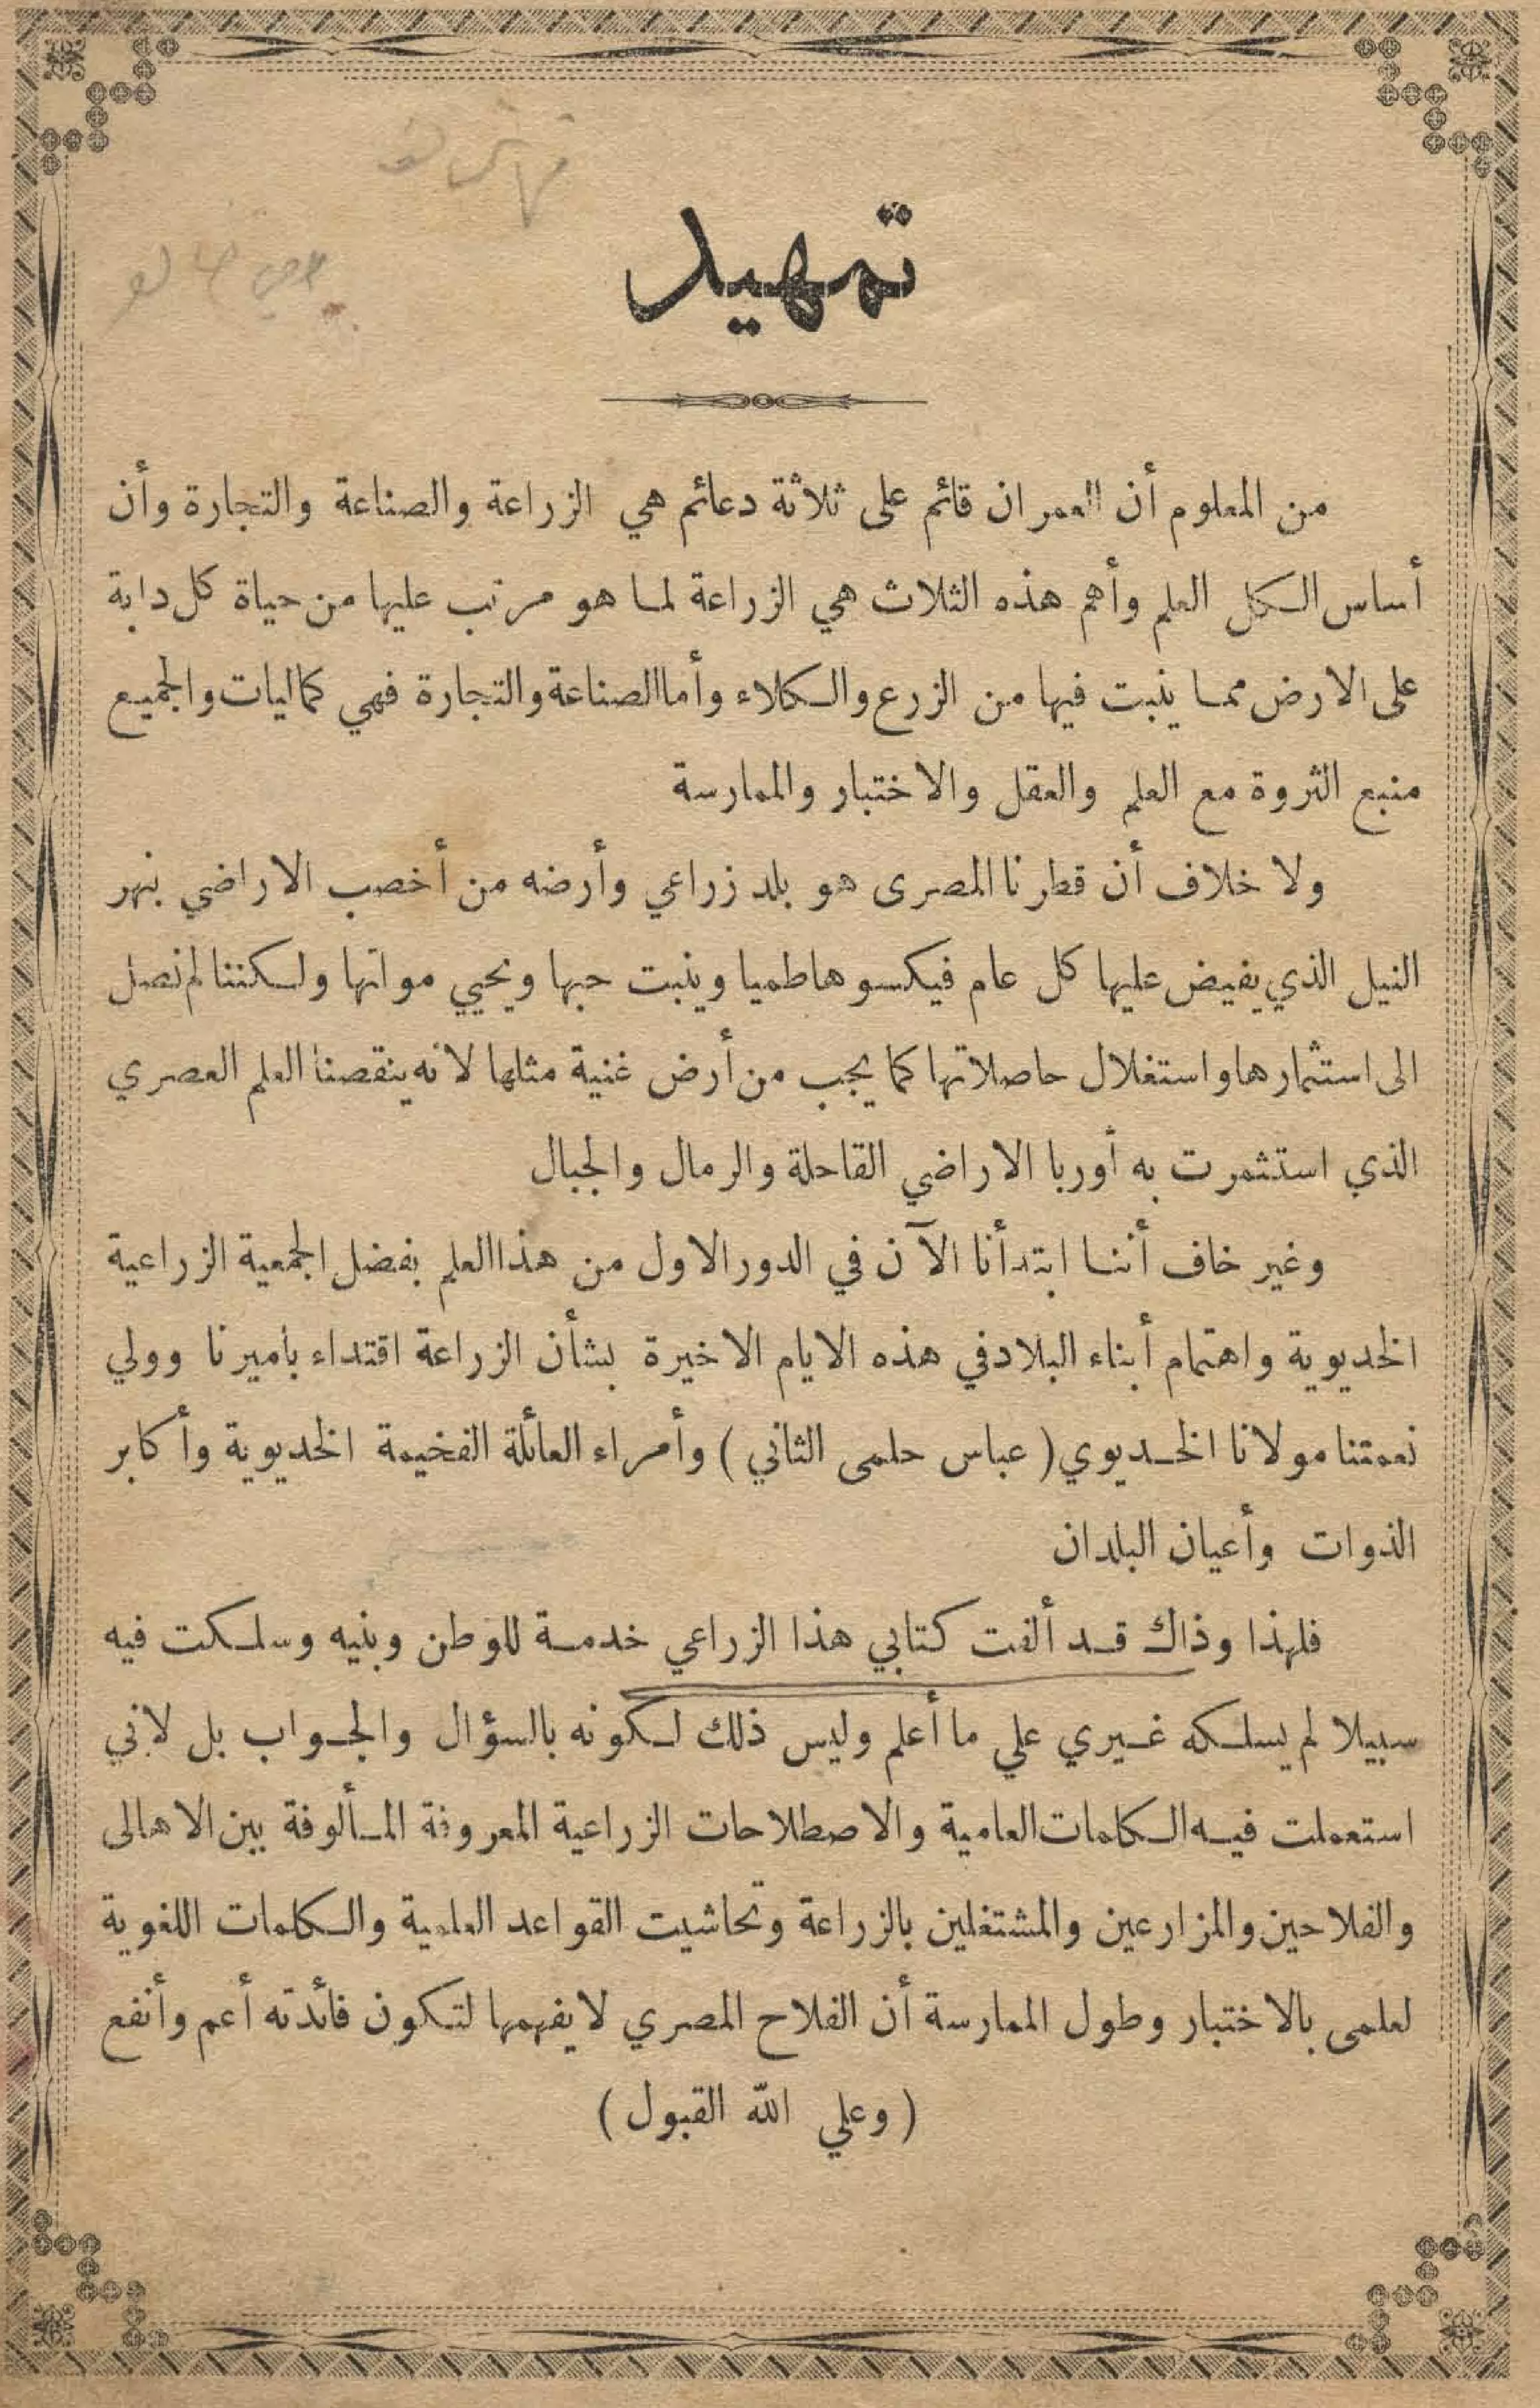 تمهيد
من المعلوم أن العمران قائم على ثلاثة دعائم هي الزراعة والصناعة والتجارة وأن
أساس الكل العلم وأهم هذه الثلاث هي الزراعة لما هو مرتب عليها من حياة كل دابة
على الارض مما ينبت فيها من الزرع والكلاء وأما الصناعة والتجارة فهي كماليات والجميع
منبع الثروة مع العلم والعقل والاختبار والممارسة
ولا خلاف أن قطرنا المصرى هو بلد زراعي وأرضه من أخصب الاراضي بنهر
النيل الذي يفيض عليها كل عام فيكسوها طميا وينبت حبها ويحيي مواتها ولكننا لم نصل
الى استثمارها واستغلال حاصلاتها كما يجب من أرض غنية مثلها لانه ينقصنا العلم العصري
الذي استثمرت به أوربا الاراضي القاحلة والرمال والجبال
وغير خاف أننا ابتدأنا الآن في الدور الاول من هذا العلم بفضل الجمعية الزراعية
الخديوية واهتمام أبناء البلاد في هذه الايام الاخيرة بشأن الزراعة اقتداء بأميرنا وولي
نعمتنا مولانا الخديوي ( عباس حلمى الثاني ) وأمراء العائلة الفخيمة الخديوية وأكابر
الذوات وأعيان البلدان
فلهذا وذاك قد ألفت كتابي هذا الزراعي خدمة للوطن وبنيه وسلكت فيه
سبيلا لم يسلكه غيري علي ما أعلم وليس ذلك لكونه بالسؤال والجواب بل لاني
استعملت فيه الكلمات العامية والاصطلاحات الزراعية المعروفة المألوفة بين الاهالى
والفلاحين والمزارعين والمشتغلين بالزراعة وتحاشيت القواعد العلمية والكلمات اللغوية
لعلمى بالاختبار وطول الممارسة أن الفلاح المصري لا يفهمها لتكون فائدته أعم وأنفع
( وعلي الله القبول )